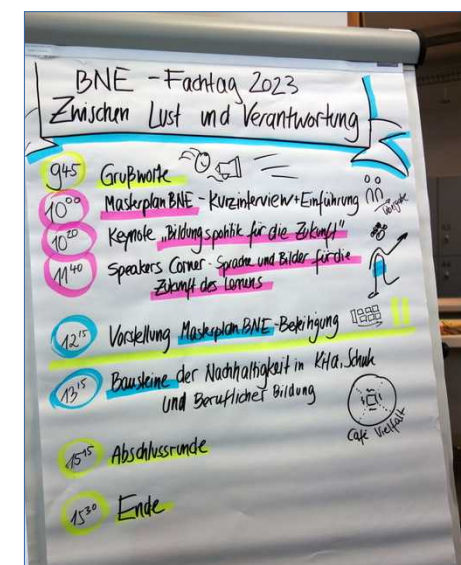 BNE - Fachtag 2023
Zwischen Lust und Verantwortung
9⁴⁵ Grußworte
10⁰⁰ Masterplan BNE - Kurzinterview + Einführung
10²⁰ Keynote „Bildungspolitik für die Zukunft"
11⁴⁰ Speakers Corner - Sprache und Bilder für die
Zukunft des Lernens
12¹⁵ Vorstellung Masterplan BNE - Beteiligung
13¹⁵ Bausteine der Nachhaltigkeit in Kita, Schule
und Beruflicher Bildung
Café Vielfalt
15¹⁵ Abschlussrunde
15³⁰ Ende